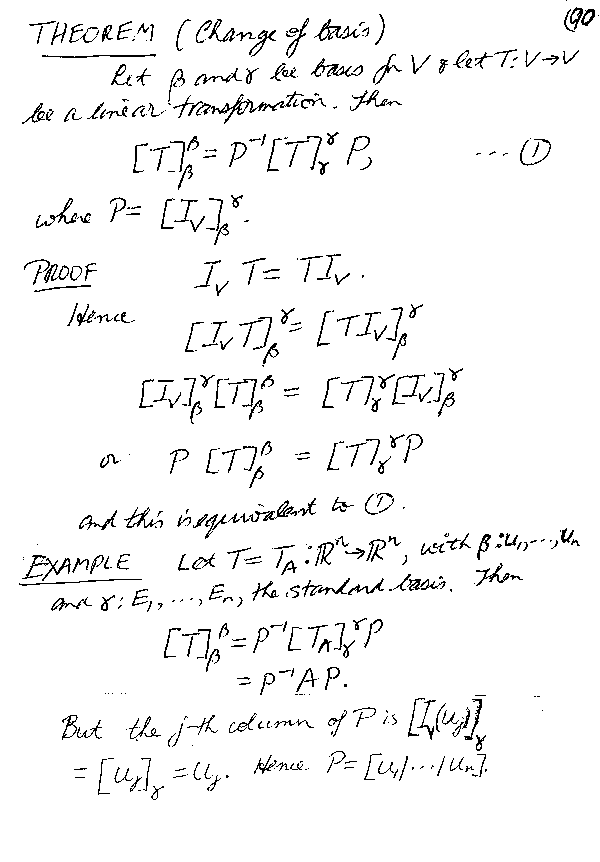 (90
THEOREM (Change of basis)
Let β and γ be bases for V & let T: V → V
be a linear transformation. Then
[T]_β^β = P⁻¹ [T]_γ^γ P, ... ①
where P = [I_V]_β^γ.
PROOF I_V T = T I_V.
Hence
[I_V T]_β^γ = [T I_V]_β^γ
[I_V]_β^γ [T]_β^β = [T]_γ^γ [I_V]_β^γ
or P [T]_β^β = [T]_γ^γ P
and this is equivalent to ①.
EXAMPLE Let T = T_A : ℝⁿ → ℝⁿ, with β : u₁, ..., uₙ
and γ : E₁, ..., Eₙ, the standard basis. Then
[T]_β^β = P⁻¹ [T_A]_γ^γ P
= P⁻¹ A P.
But the j-th column of P is [I_V(u_j)]_γ
= [u_j]_γ = u_j. Hence P = [u₁|...|uₙ].